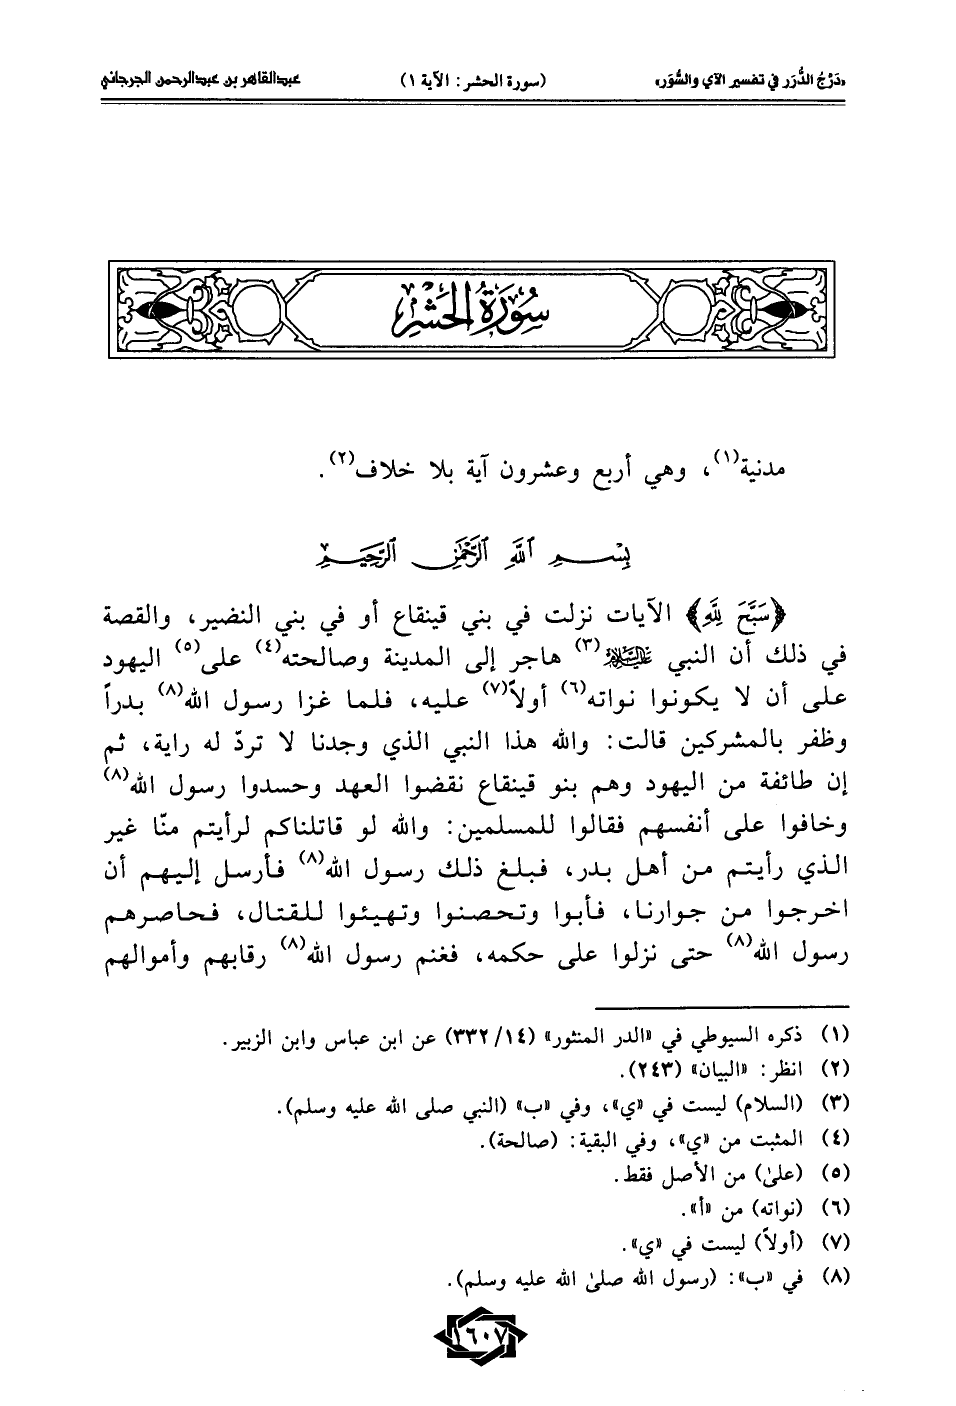 «دَرْجُ الدُّرَر في تفسير الآي والسُّوَر» (سورة الحشر: الآية ١) عبدالقاهر بن عبدالرحمن الجرجاني
سُورَةُ الحَشْرِ
مدنية(١)، وهي أربع وعشرون آية بلا خلاف(٢).
بِسْمِ اللَّهِ الرَّحْمَٰنِ الرَّحِيمِ
﴿سَبَّحَ لِلَّهِ﴾ الآيات نزلت في بني قينقاع أو في بني النضير، والقصة
في ذلك أن النبي عليه السلام(٣) هاجر إلى المدينة وصالحته(٤) على(٥) اليهود
على أن لا يكونوا نواته(٦) أولاً(٧) عليه، فلما غزا رسول الله(٨) بدراً
وظفر بالمشركين قالت: والله هذا النبي الذي وجدنا لا تردّ له راية، ثم
إن طائفة من اليهود وهم بنو قينقاع نقضوا العهد وحسدوا رسول الله(٨)
وخافوا على أنفسهم فقالوا للمسلمين: والله لو قاتلناكم لرأيتم منّا غير
الذي رأيتم من أهل بدر، فبلغ ذلك رسول الله(٨) فأرسل إليهم أن
اخرجوا من جوارنا، فأبوا وتحصنوا وتهيئوا للقتال، فحاصرهم
رسول الله(٨) حتى نزلوا على حكمه، فغنم رسول الله(٨) رقابهم وأموالهم
(١) ذكره السيوطي في «الدر المنثور» (١٤/ ٣٣٢) عن ابن عباس وابن الزبير.
(٢) انظر: «البيان» (٢٤٣).
(٣) (السلام) ليست في «ي»، وفي «ب» (النبي صلى الله عليه وسلم).
(٤) المثبت من «ي»، وفي البقية: (صالحة).
(٥) (علىٰ) من الأصل فقط.
(٦) (نواته) من «أ».
(٧) (أولاً) ليست في «ي».
(٨) في «ب»: (رسول الله صلىٰ الله عليه وسلم).
١٦٠٧